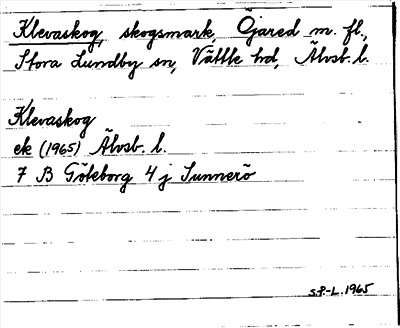 Klevaskog, skogsmark, Öjared m. fl.,
Stora Lundby sn, Vättle hd, Älvsb. l.
Klevaskog
ek (1965) Älvsb. l.
7 B Göteborg 4 j Sunnerö
S.P.-L. 1965